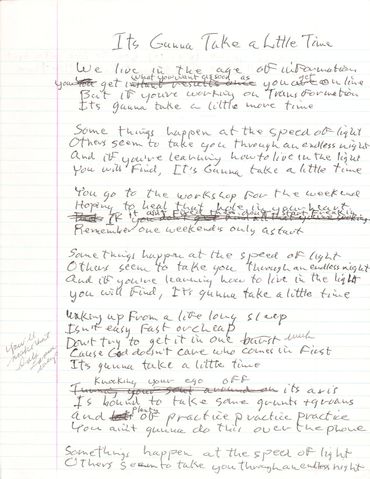 Its Gunna Take a Little Time
We live in the age of information
what you want as soon as
you get instant results once you are on line
But if you're working on Transformation
Its gunna take a little more time
Some things happen at the speed of light
Others seem to take you through an endless night
And if you're learning how to live in the light
you will find, It's Gunna take a little time
You go to the workshop for the weekend
Hoping to heal that hole in your heart
it ain't
If you
Remember one weekends only a start
Somethings happen at the speed of light
Others seem to take you through an endless night
And if you're learning how to live in the light
you will find, Its gunna take a little time
Waking up from a life long sleep
Isn't easy fast or cheap
Don't try to get it in one burst
Cause God doesn't care who comes in first
Its gunna take a little time
Knoking your ego off
Turning your soul around on its axis
Is bound to take some grunts + groans
and plenty of practice practice practice
You ain't gunna do this over the phone
Somethings happen at the speed of light
Others seem to take you through an endless night